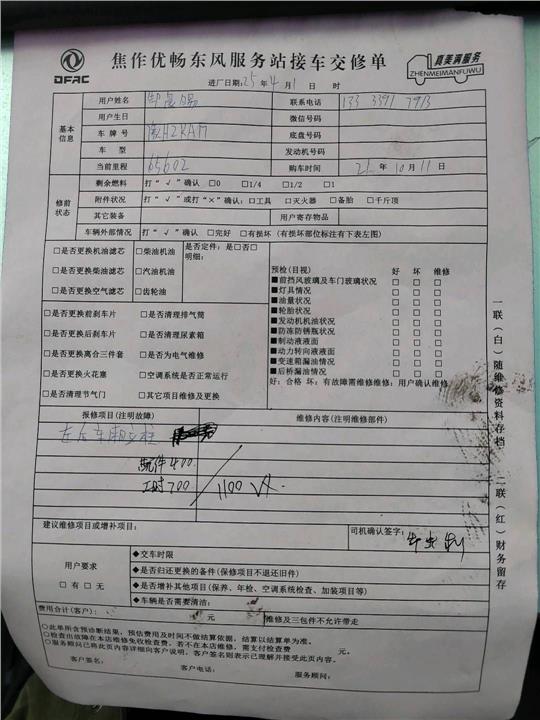 DFAC
焦作优畅东风服务站接车交修单
真美满服务
ZHENMEIMANFUWU
进厂日期:25年4月1日 时
用户姓名 联系电话 133 3391 7913
基本信息
用户生日 微信号码
车牌号 H2KAM 底盘号码
车型 发动机号码
当前里程 65602 购车时间 21年10月11日
修前状态
剩余燃料 打“√”确认 □0 □1/4 □1/2 □1
附件状况 打“√”或打“×”确认:□工具 □灭火器 □备胎 □千斤顶
其它装备 用户寄存物品
车辆外部情况 打“√”确认 □完好 □有损坏(有损坏部位标注有下表左图)
□是否更换机油滤芯 □柴油机油 是否定件:是□否□
明细:
□是否更换柴油滤芯 □汽油机油
□是否更换空气滤芯 □齿轮油
预检(目视) 好 坏 维修
■前挡风玻璃及车门玻璃状况 □ □ □
■灯具情况 □ □ □
■油量状况 □ □ □
■轮胎状况 □ □ □
■发动机机油状况 □ □ □
■防冻防锈瓶状况 □ □ □
■制动液液面 □ □ □
■动力转向液液面 □ □ □
■变速箱漏油情况 □ □ □
■后桥漏油情况 □ □ □
好:合格 坏:有故障需维修维修:用户确认维修
□是否更换前刹车片 □是否清理排气筒
□是否更换后刹车片 □是否清理尿素箱
□是否更换离合三件套 □是否为电气维修
□是否更换火花塞 □空调系统是否正常运行
□是否清理节气门 □其它项目维修及更换
报修项目(注明故障) 维修内容(注明维修部件)
左后车厢立柱
配件400
工时700 1100
建议维修项目或增补项目: 司机确认签字:
用户要求
□有□无
◆交车时限
◆是否归还更换的备件(保修项目不退还旧件)
◆是否增补其他项目(保养、年检、空调系统检查、加装项目等)
◆车辆是否需要清洁:
费用合计(客户): 元 维修及三包件不允许带走
○此单所含预诊断结果,预估费用及时间不做结算依据,结算以结算单为准。
○检查出故障在本店维修免收检查费。若不在本店维修,需支付检查费 元。
○服务顾问已将此页内容详细向客户说明。客户签名则表示已理解并接受此页内容。
客户签名: 客户电话: 服务顾问:
一联(白)随维修资料存档 二联(红)财务留存